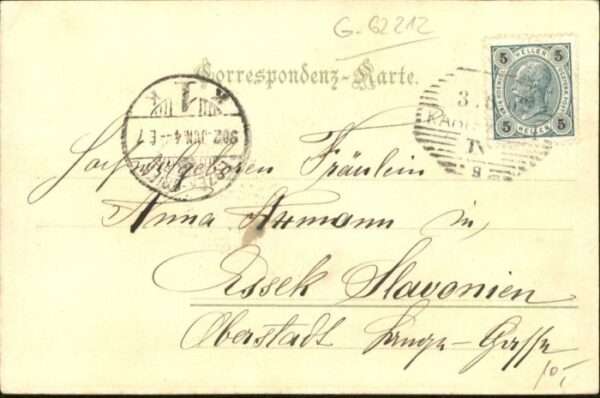 G-62212
Correspondenz-Karte.
5 HELLER 5
5 HELLER 5
3.
KARL
IV
8
1
902 JUN. 4 - E 7
Hochwohlgeboren Fräulein
Anna Axmann in,
Essek Slavonien
Oberstadt Lange-Gasse
10,-